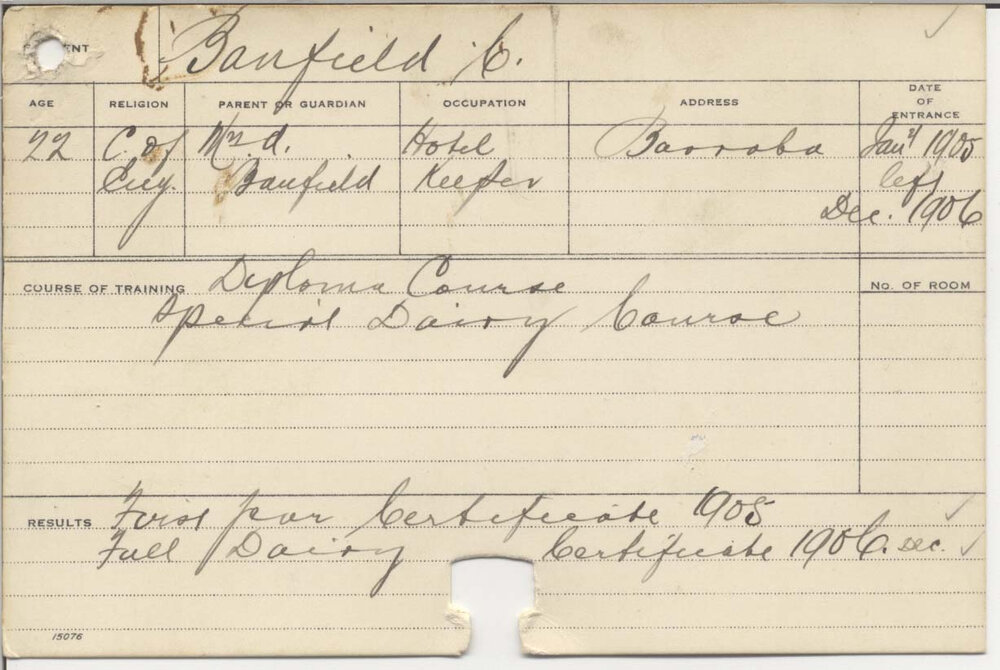 ENT Banfield C.
AGE RELIGION PARENT OR GUARDIAN OCCUPATION ADDRESS DATE OF ENTRANCE
22 C. of Mrs. A. Hotel Barraba Jany 1905
Eng. Banfield Keeper left
Dec. 1906
COURSE OF TRAINING Diploma Course No. OF ROOM
Special Dairy Course
RESULTS First year Certificate 1905
Full Dairy Certificate 1906. Dec.
15076